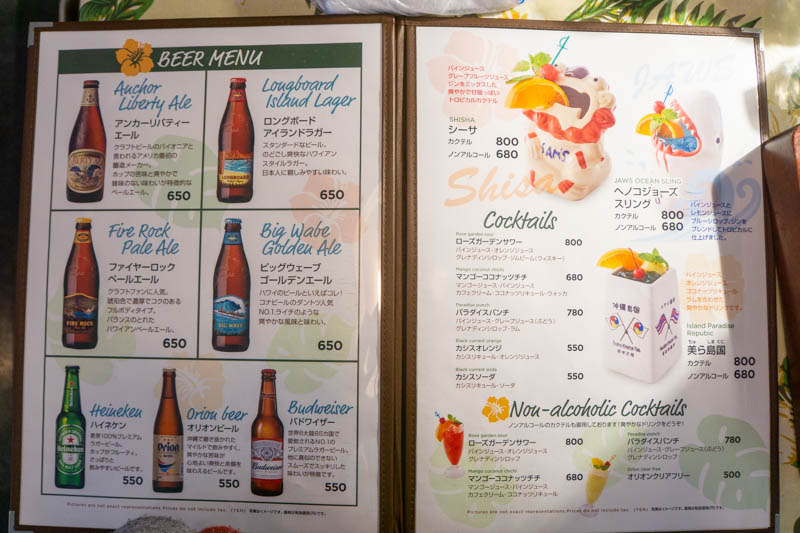 BEER MENU
Anchor
Liberty Ale
アンカーリバティー
エール
クラフトビールのパイオニアと
言われるアメリカ最初の
醸造メーカー。
ホップの苦味と爽やかで
雑味のない味わいが特徴的な
ペールエール。
650
Longboard
Island Lager
ロングボード
アイランドラガー
スタンダードなビール。
のどごし爽快なハワイアン
スタイルラガー。
日本人に親しみやすい味わい。
650
Fire Rock
Pale Ale
ファイヤーロック
ペールエール
クラフトファンに人気。
琥珀色で濃厚でコクのある
フルボディタイプ。
バランスのとれた
ハワイアンペールエール。
650
Big Wabe
Golden Ale
ビッグウェーブ
ゴールデンエール
ハワイのビールといえばコレ!
コナビールのダントツ人気
NO.1.ライチのような
爽やかな風味と味わい。
650
Heineken
ハイネケン
麦芽100%プレミアム
ラガービール。
ホップがフルーティ。
さっぱりと
飲みやすいビールです。
550
Orion beer
オリオンビール
沖縄で磨き合われた
マイルドで飲みやすく、
爽やかな苦味が
心地よい爽快と余韻を
味わえるビールです。
550
Budweiser
バドワイザー
世界85カ国で
愛飲されるNO.1の
プレミアムラガービール。
他に類似のできない
スムーズでスッキリした
味わいが特徴です。
550
Pictures are not exact representations.Prices do not include tax. (YEN)
パインジュース
グレープフルーツジュース
ジンをミックスした
爽やかで甘酸っぱい
トロピカルカクテル
SHISHA
シーサ
カクテル 800
ノンアルコール 680
SAM'S
Shisa
JAWS OCEAN SLING
ヘノコジョーズ
スリング
カクテル 800
ノンアルコール 680
パインジュースと
レモンジュースに
ブルーシロップ、ジンを
ブレンドしてトロピカルに
仕上げました。
Cocktails
Rose garden sour
ローズガーデンサワー 800
パインジュース・オレンジジュース
グレナディンシロップ・ジムビーム(ウィスキー)
Mango coconut chichi
マンゴーココナッツチチ 680
マンゴージュース・パインジュース
カフェクリーム・ココナッツリキュール・ウォッカ
Paradise punch
パラダイスパンチ 780
パインジュース・グレープジュース(ぶどう)
グレナディンシロップ・ラム
Black currant orange
カシスオレンジ 550
カシスリキュール・オレンジジュース
Black currant soda
カシスソーダ 550
カシスリキュール・ソーダ
パインジュース
オレンジジュース
ココナッツリキュール
ラムを合わせた
爽やかなドリンクです。
沖縄島国
Island Paradise
Repubic
ちゅ しまぐに
美ら島国
カクテル 800
ノンアルコール 680
Non-alcoholic Cocktails
ノンアルコールのカクテルも御用しております!爽やかなドリンクをどうぞ!
Rose garden sour
ローズガーデンサワー 800
パインジュース・オレンジジュース
グレナディンシロップ
Mango coconut chichi
マンゴーココナッツチチ 680
マンゴージュース・パインジュース
カフェクリーム・ココナッツリキュール
Paradise punch
パラダイスパンチ 780
パインジュース・グレープジュース(ぶどう)
グレナディンシロップ
Orion clear free
オリオンクリアフリー 500
Pictures are not exact representations.Prices do not include tax. (YEN)